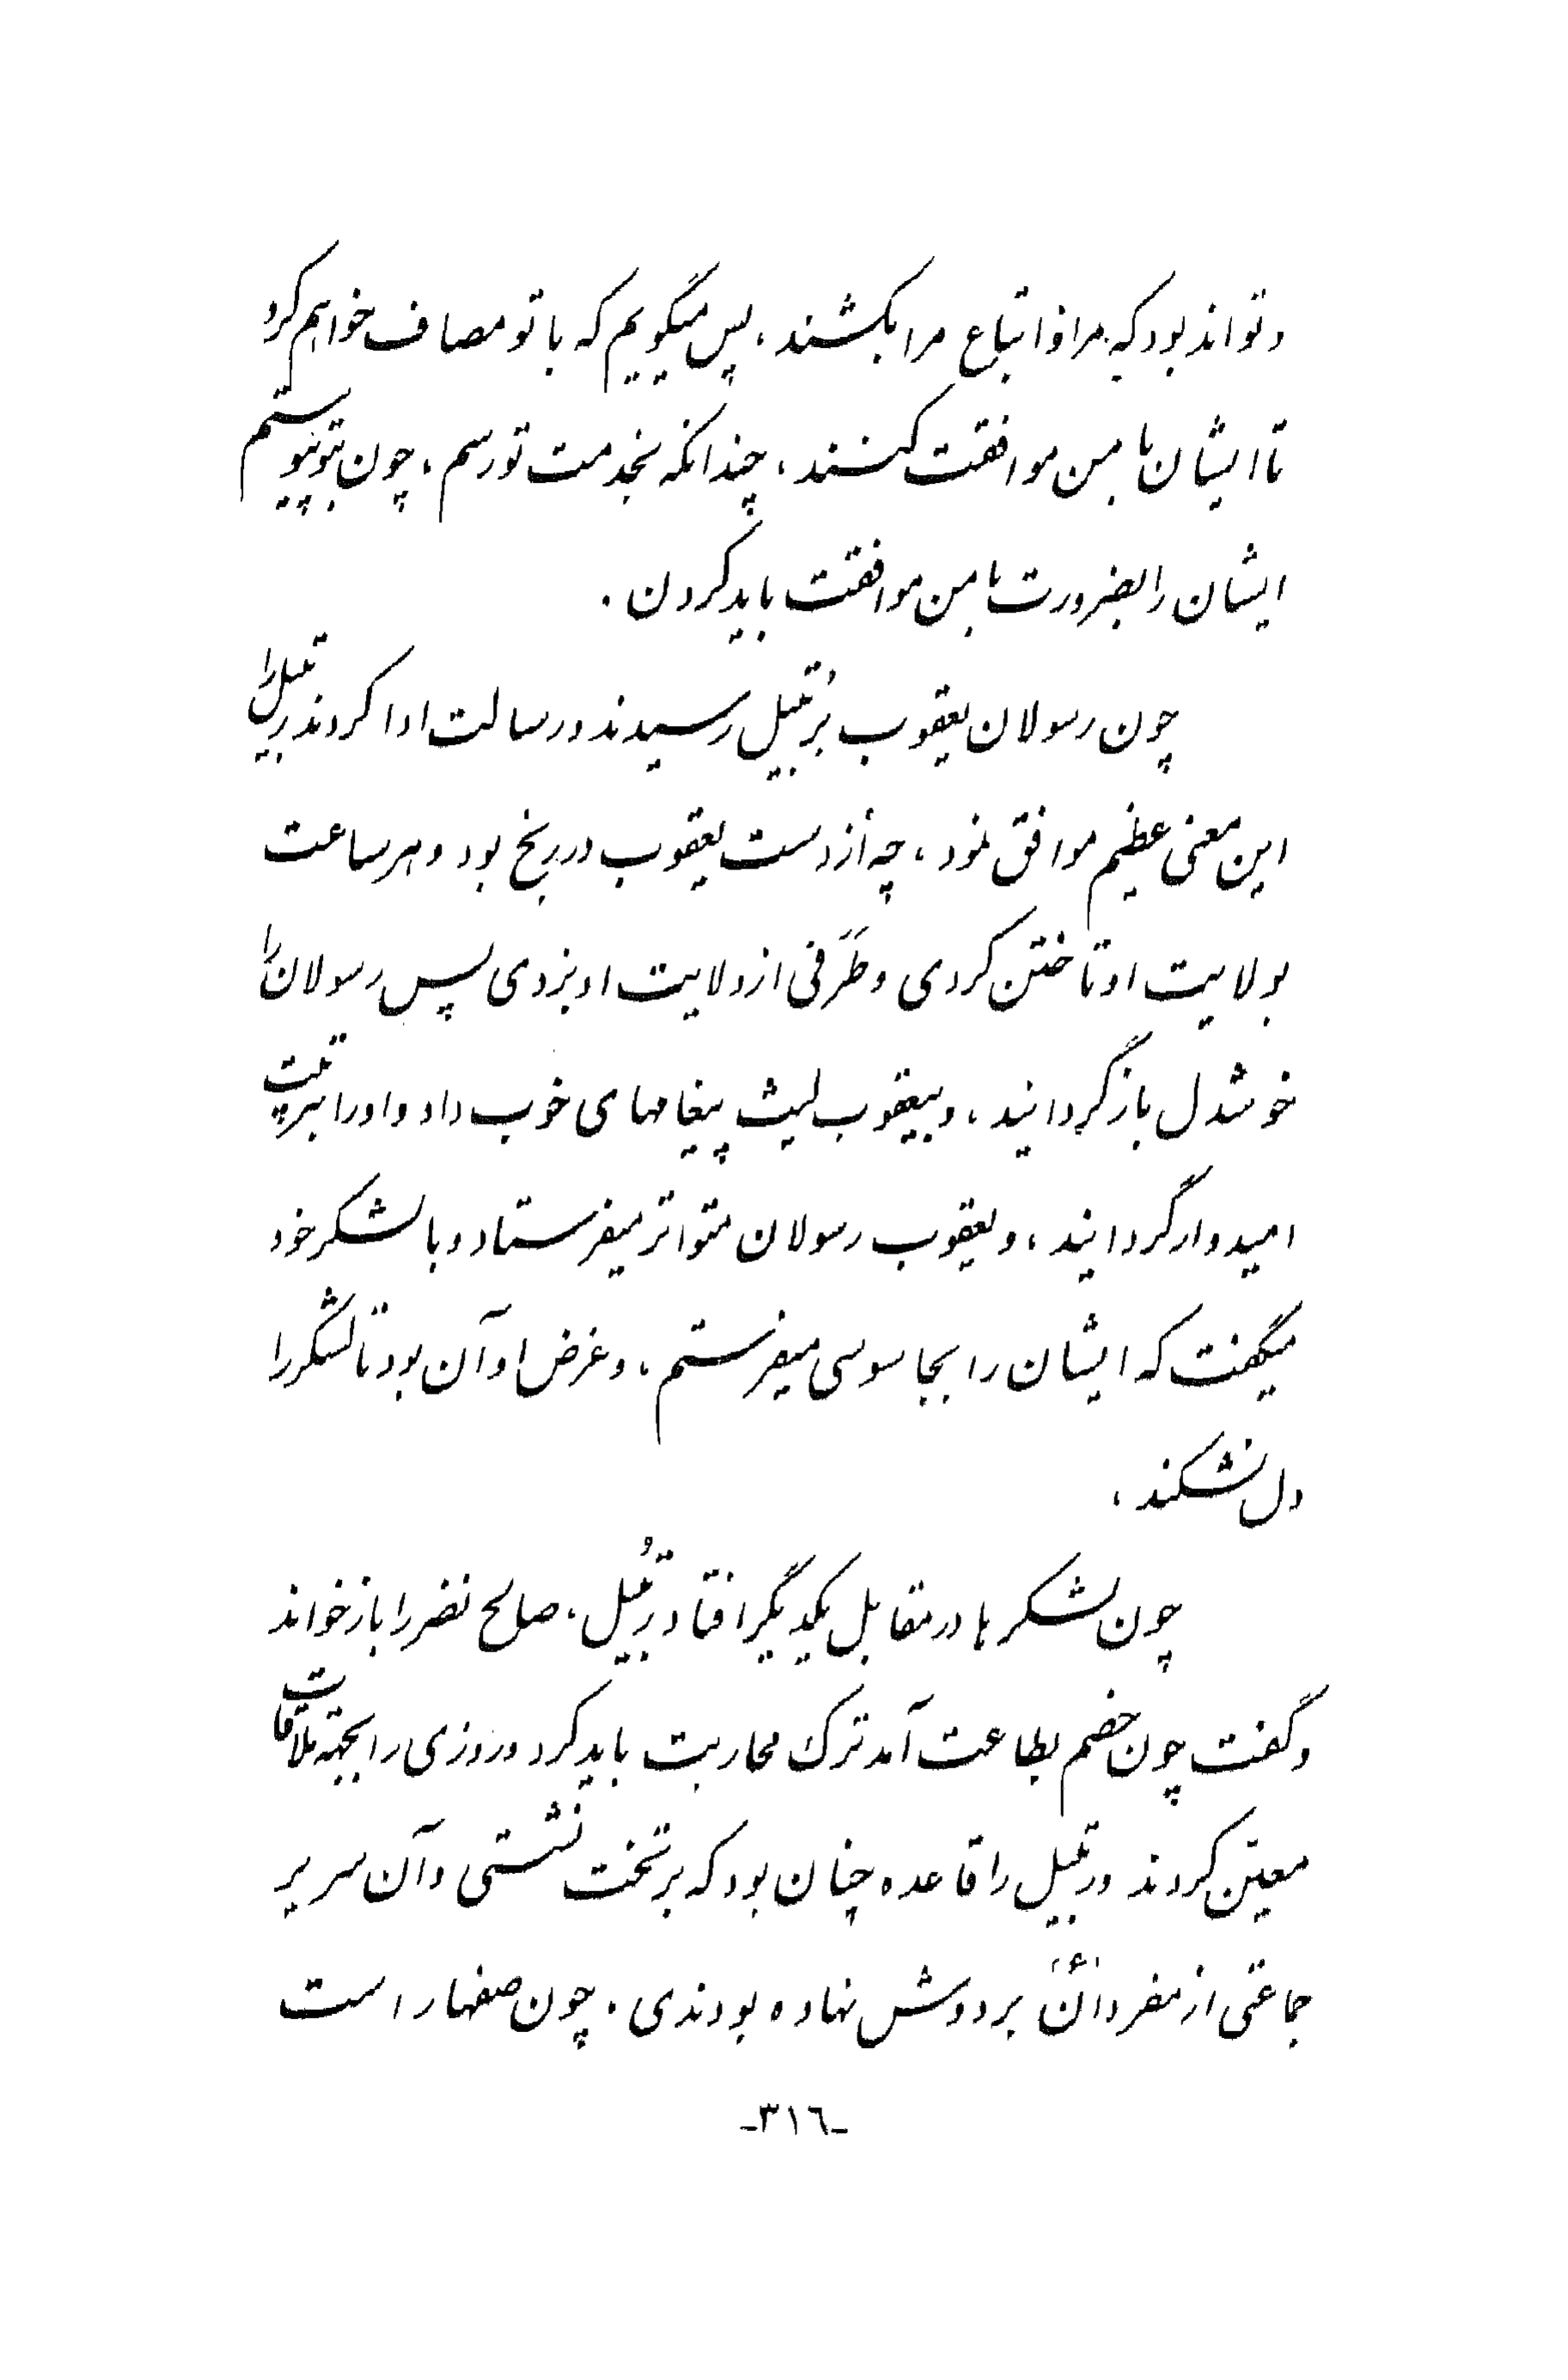 و تواند بود که مرا و اتباع مرا بکشند، پس میگویم که با تو مصاف خواهم کرد
تا ایشان با من موافقت کنند، چندانکه بخدمت تو رسم، چون بتو پیوستم
ایشان را بضرورت با من موافقت باید کردن.
چون رسولان یعقوب برُتبیل رسیدند و رسالت ادا کردند رتبیل را
این معنی عظیم موافق نمود، چه أز دست یعقوب در رنج بود و هر ساعت
بولایت او تاختن کردی و طَرَفی از ولایت او بزدی پس رسولان را
خوشدل باز گردانید، و بیعقوب لیث پیغامهای خوب داد و او را بترتیب
امیدوار گردانید، و یعقوب رسولان متواتر میفرستاد و با لشکر خود
میگفت که ایشان را بجاسوسی میفرستم، و غرض او آن بود تا لشکر را
دل نشکند،
چون لشکرها در مقابل یکدیگر افتاد رُتبیل، صالح نضر را باز خواند
و گفت چون خصم بطاعت آمد ترک محاربت باید کرد و روزی را بجهة ملاقات
معیّن کردند و رتبیل را قاعده چنان بود که بر تخت نشستی و آن سریر
جماعتی از مفردان بر دوش نهاده بودندی. چون صفها راست
-۳۱٦-